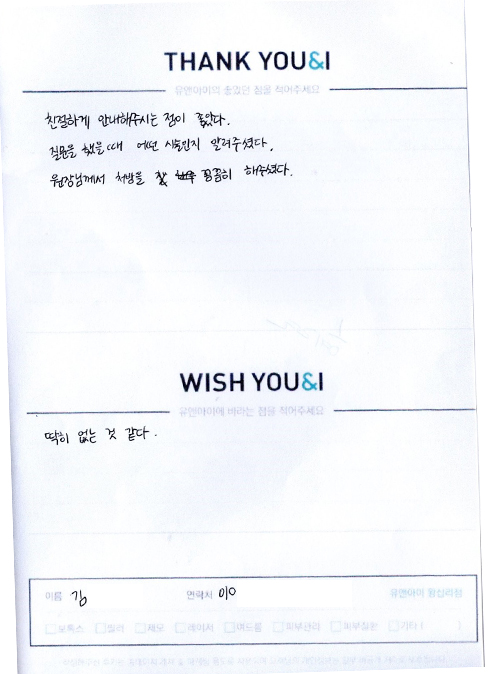 THANK YOU&I
유앤아이의 좋았던 점을 적어주세요
친절하게 안내해주시는 점이 좋았다.
질문을 했을때 어떤 시술인지 알려주셨다.
원장님께서 처방을 꼼꼼히 해주셨다.
WISH YOU&I
유앤아이에 바라는 점을 적어주세요
딱히 없는 것 같다.
이름 김 연락처 010 유앤아이 왕십리점
보톡스 필러 제모 레이저 여드름 피부관리 피부질환 기타 ( )